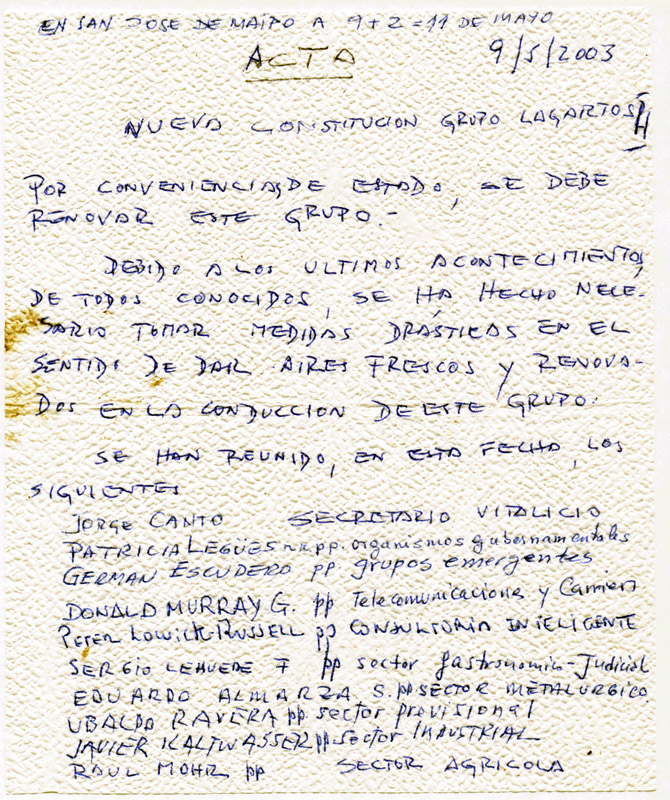 EN SAN JOSE DE MAIPO A 9+2=11 DE MAYO
ACTA 9/5/2003
NUEVA CONSTITUCION GRUPO LAGARTOS
POR CONVENIENCIAS, DE ESTADO, SE DEBE
RENOVAR ESTE GRUPO.-
DEBIDO A LOS ULTIMOS ACONTECIMIENTOS,
DE TODOS CONOCIDOS, SE HA HECHO NECE-
SARIO TOMAR MEDIDAS DRÁSTICAS EN EL
SENTIDO DE DAR AIRES FRESCOS Y RENOVA-
DOS EN LA CONDUCCION DE ESTE GRUPO.
SE HAN REUNIDO, EN ESTA FECHA, LOS
SIGUIENTES
JORGE CANTO SECRETARIO VITALICIO
PATRICIA LEGÜES pp. organismos gubernamentales
GERMAN ESCUDERO pp grupos emergentes
DONALD MURRAY G. pp Telecomunicaciones y Carrier
PETER LOWICK-RUSSELL pp CONSULTORIA INTELIGENTE
SERGIO LEHUEDE F pp sector Gastronomico-Judicial
EDUARDO ALMARZA S. pp SECTOR METALURGICO
UBALDO RAVERA pp. sector previsional
JAVIER KALTWASSER pp. sector INDUSTRIAL
RAUL MOHR pp SECTOR AGRICOLA